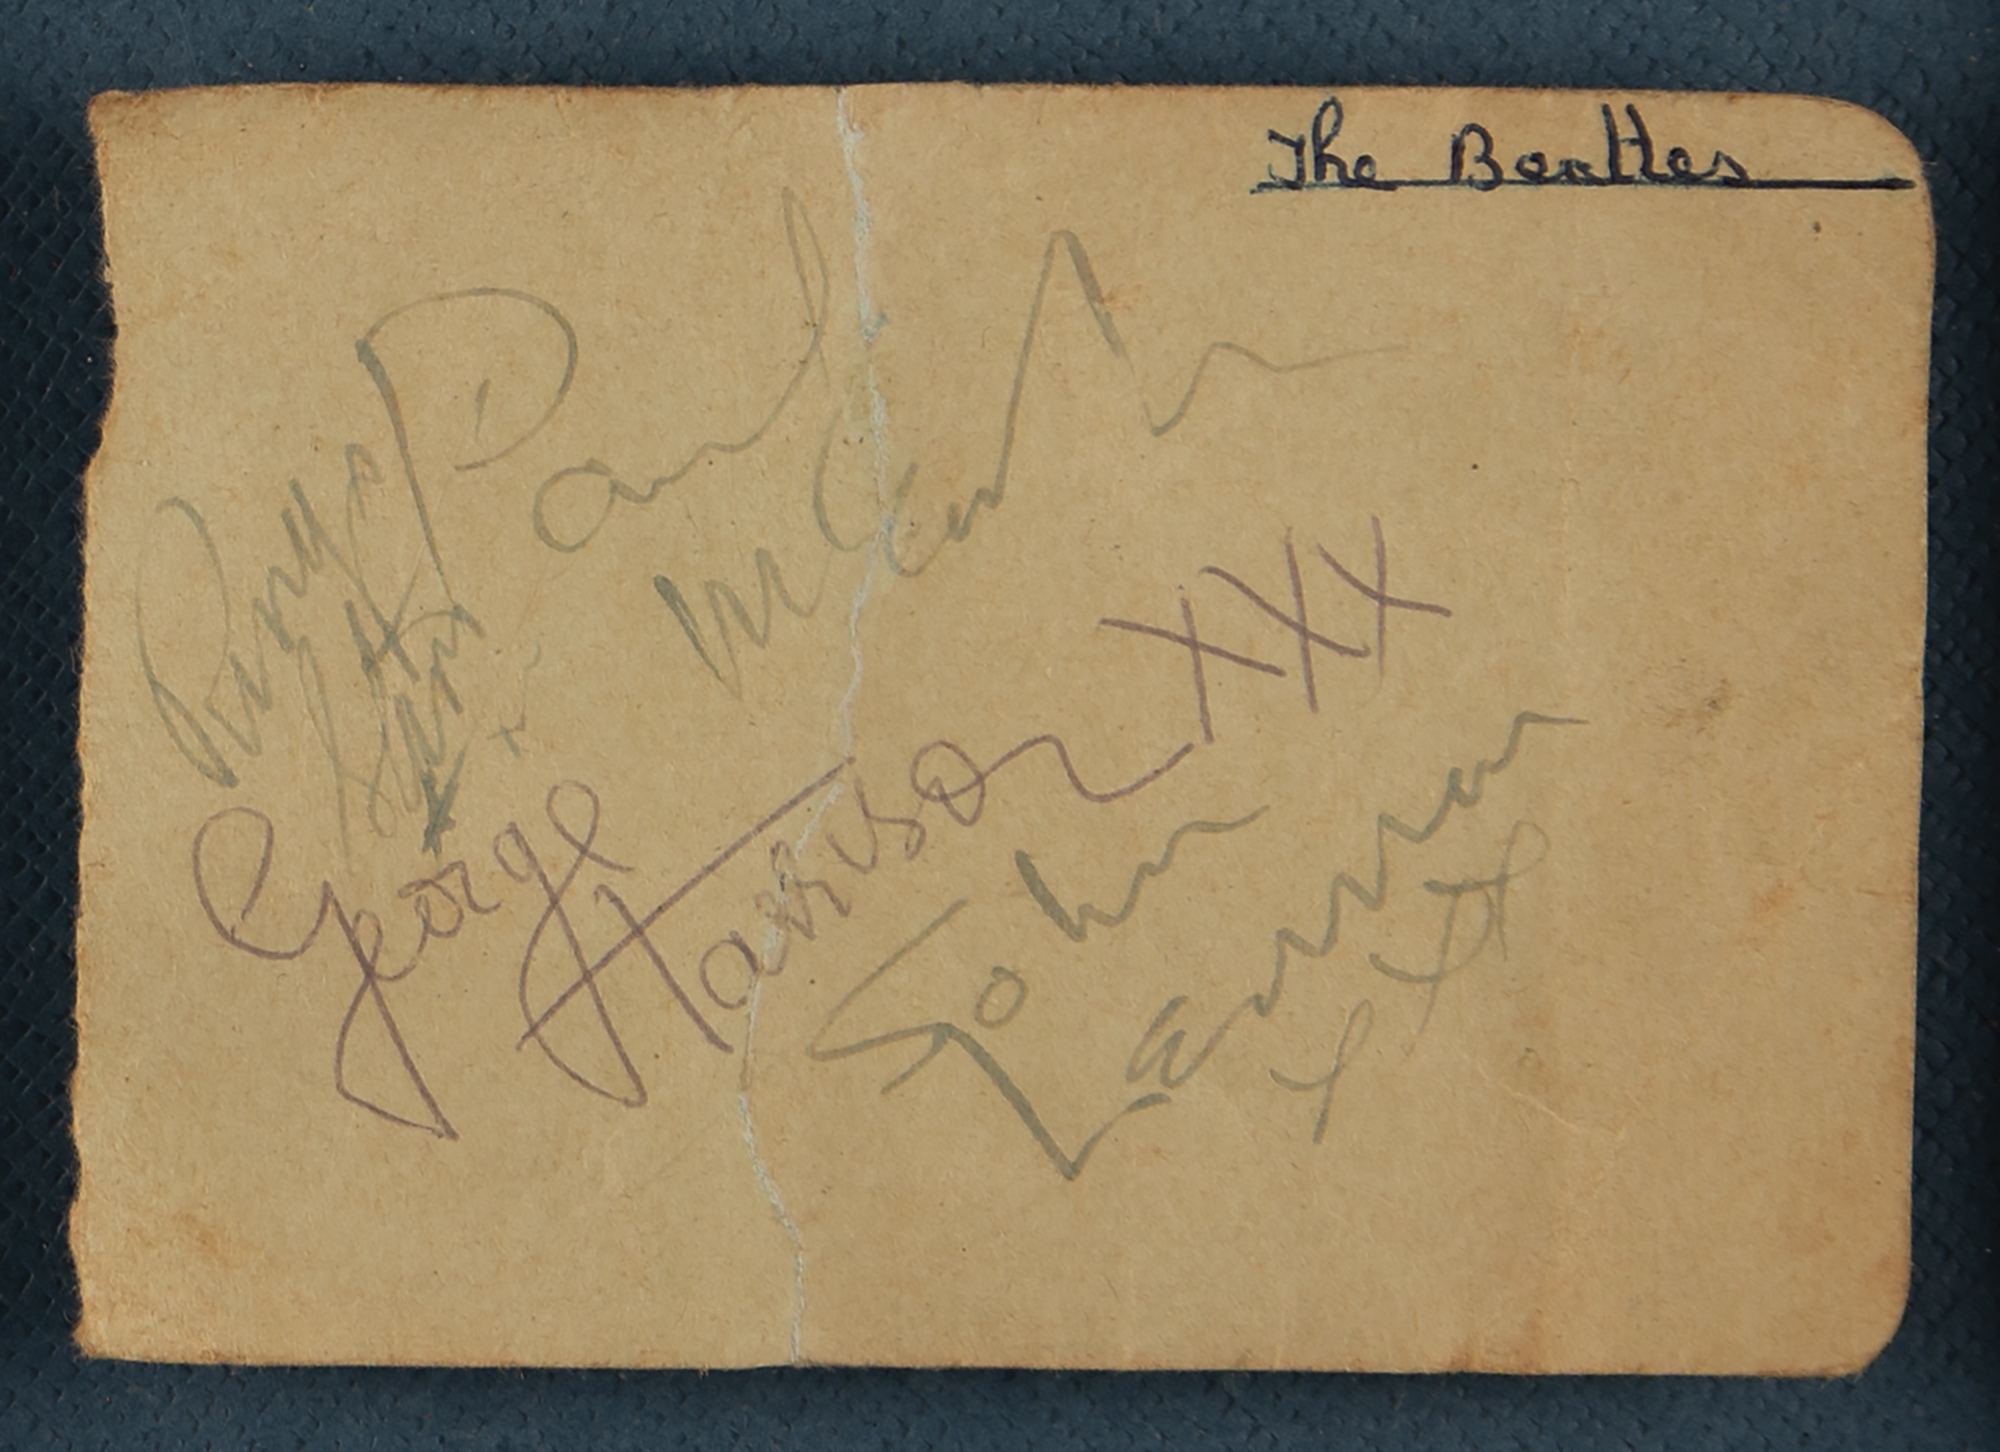 The Beatles
Paul
McCartney
Ringo
Starr
George Harrison XXX
John
Lennon
xxx